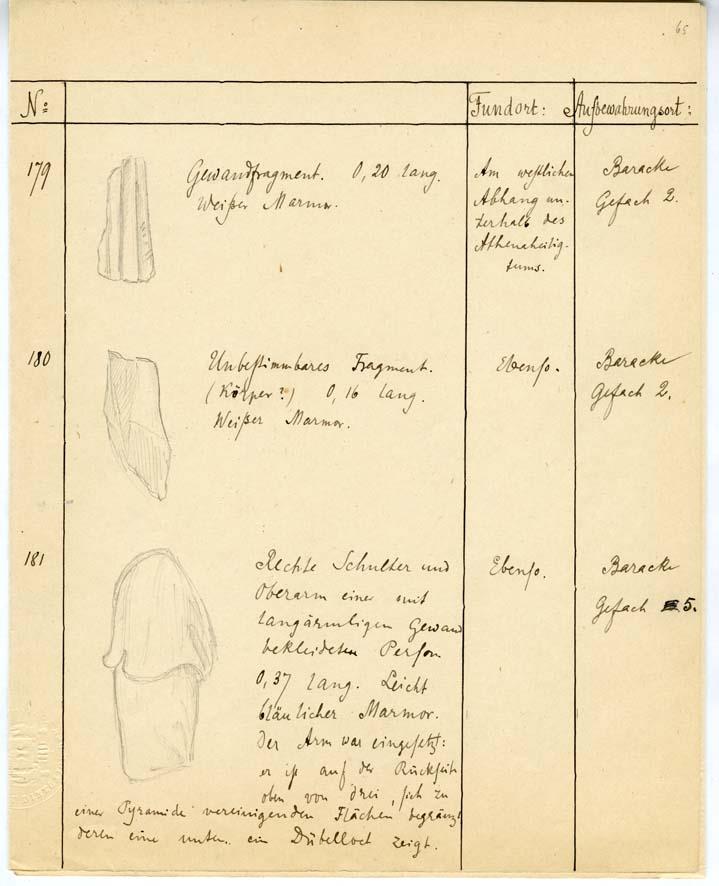 65
No: Fundort: Aufbewahrungsort:
179
Gewandfragment. 0,20 lang.
Weißer Marmor.
Am westlichen
Abhang un-
terhalb des
Athenaheilig-
tums.
Baracke
Gefach 2.
180
Unbestimmbares Fragment.
(Körper?) 0,16 lang.
Weißer Marmor.
Ebenso.
Baracke
Gefach 2.
181
Rechte Schulter und
Oberarm einer mit
langärmligen Gewand
bekleideten Person
0,37 lang. Leicht
bläulicher Marmor.
Der Arm war eingesetzt:
er ist auf der Rückseite
oben von drei, sich zu
einer Pyramide vereinigenden Flächen begränzt
deren eine unten ein Dübelloch zeigt.
Ebenso.
Baracke
Gefach 5.